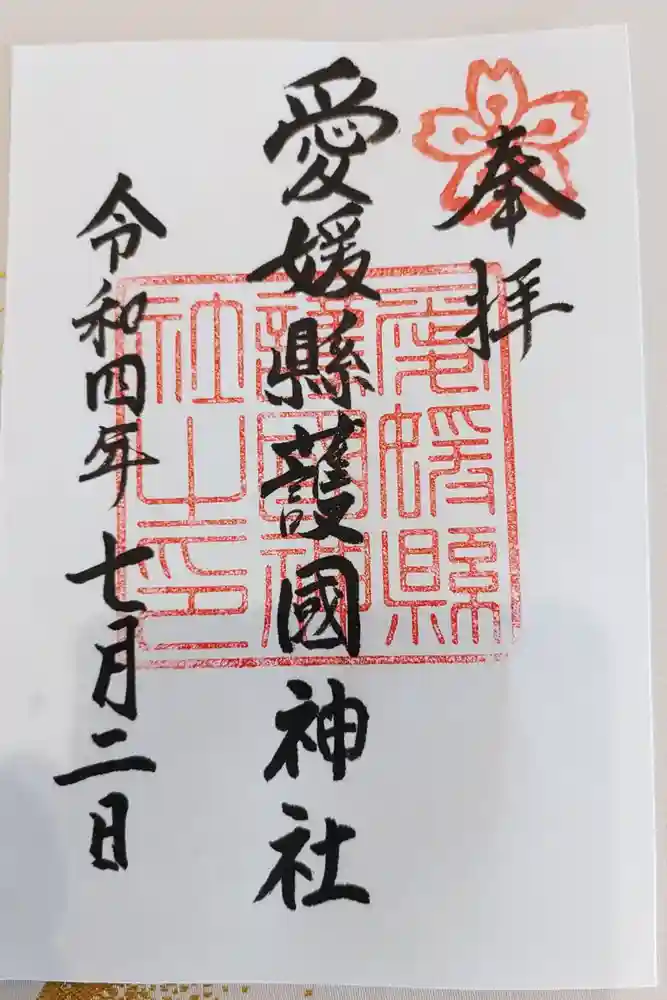 奉拝
愛媛縣護國神社
令和四年七月二日
愛媛縣
護國神
社之印